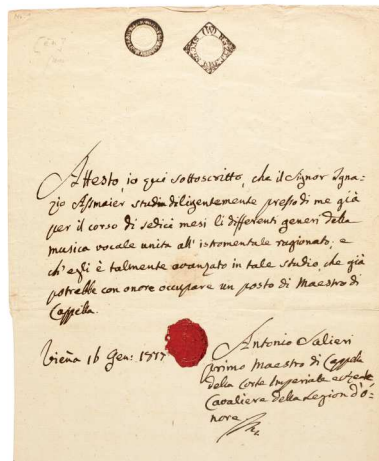 Attesto, io qui sottoscritto, che il Signor Igna-
zio Assmaier studia diligentemente presso di me già
per il corso di sedici mesi li differenti generi della
musica vocale unita all' istromentale ragionato, e
ch'egli è talmente avanzato in tale studio, che già
potrebbe con onore occupare un posto di Maestro di
Cappella.
Viena 16 Gen:
Antonio Salieri
primo Maestro di Cappella
della Corte Imperiale
Cavaliere della Legion d'o-
nore